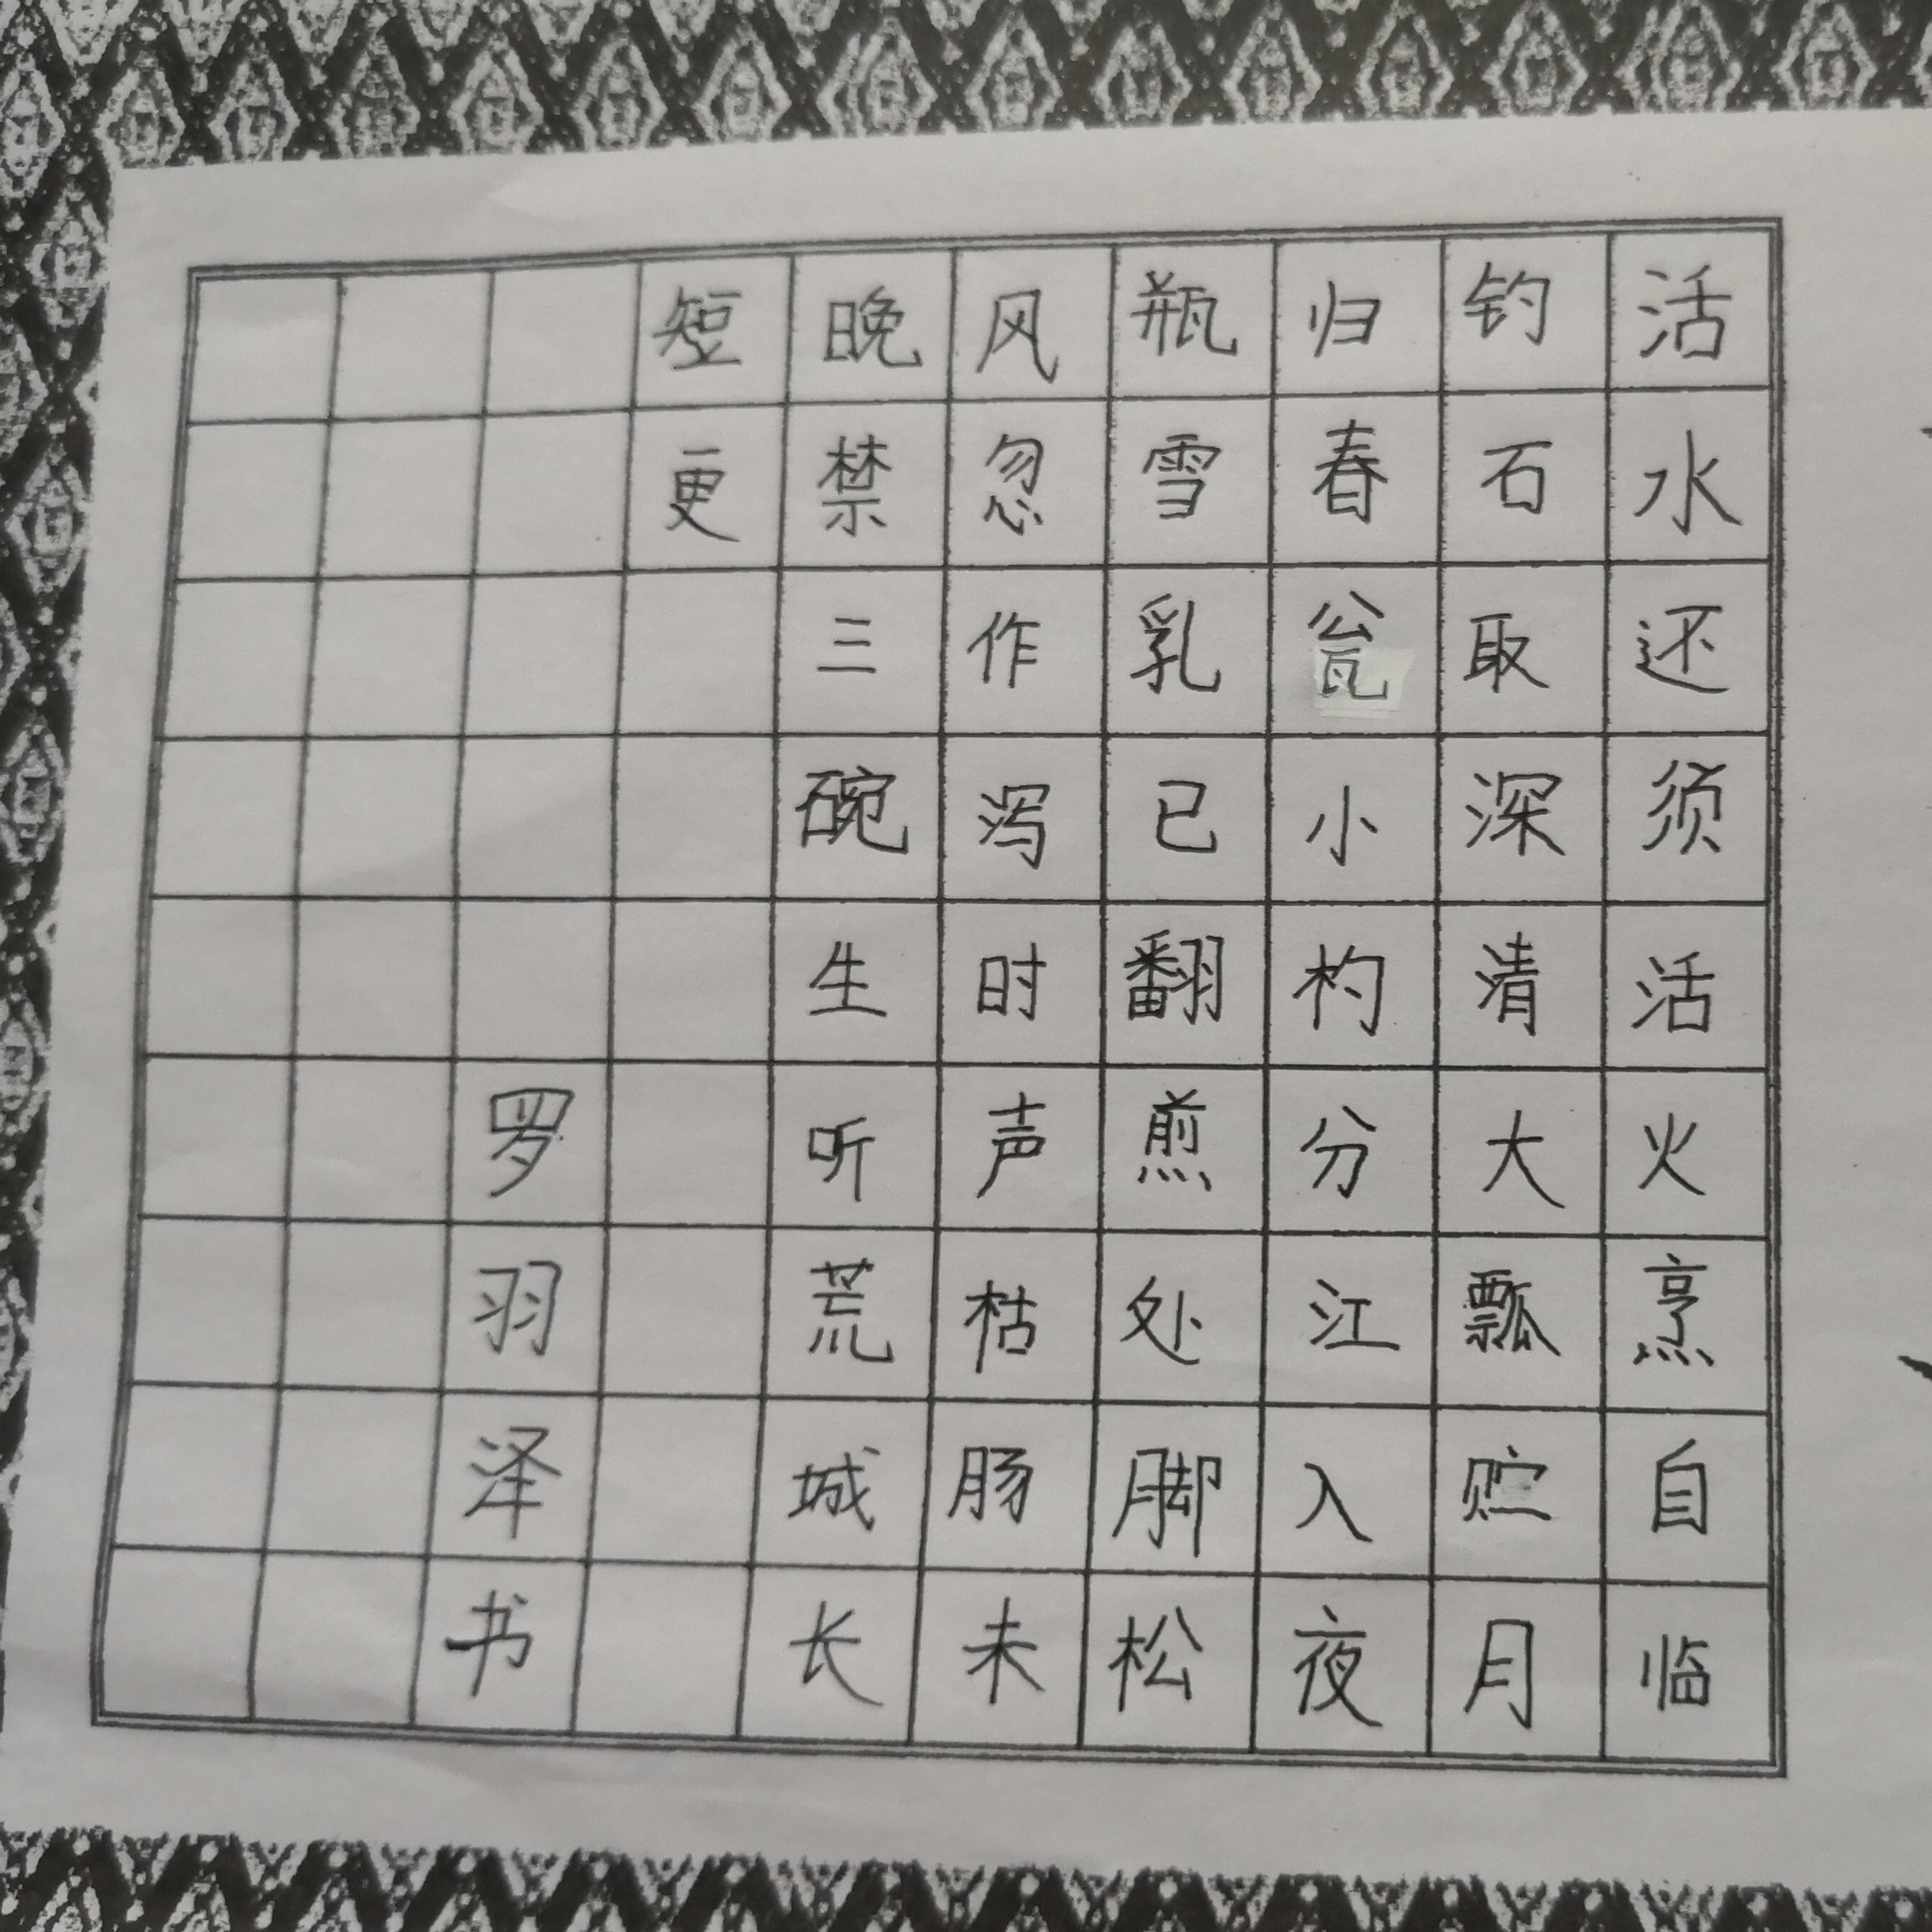 活水还须活火烹自临
钓石取深清大瓢贮月
归春瓮小杓分江入夜
瓶雪乳已翻煎处脚松
风忽作泻时声枯肠未
晚禁三碗生听荒城长
短更
罗羽泽书